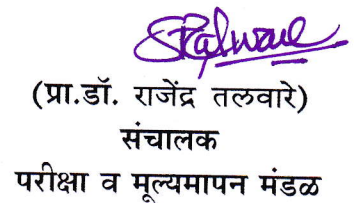 (प्रा.डॉ. राजेंद्र तलवारे)
संचालक
परीक्षा व मूल्यमापन मंडळ